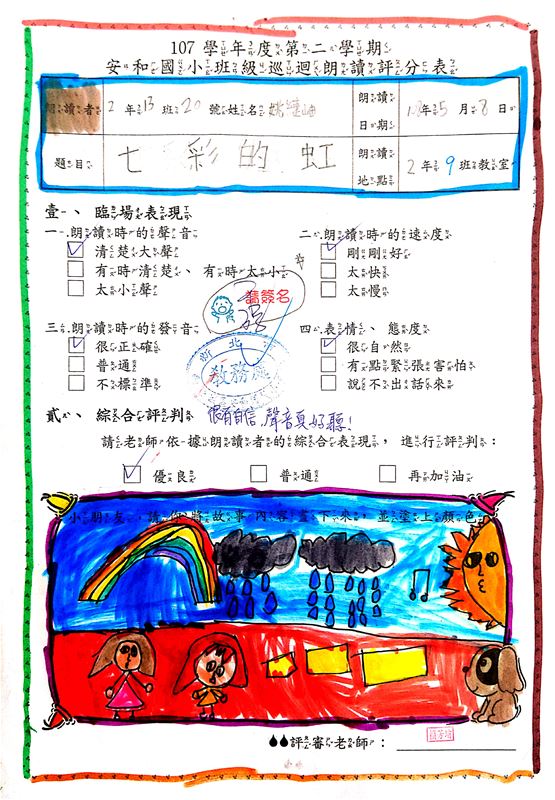 107 學年度第二學期
安和國小班級巡迴朗讀評分表
朗讀者 2 年 13 班 20 號姓名
朗讀日期 108 年 5 月 8 日
題目 七彩的虹
朗讀地點 2 年 9 班教室
壹、臨場表現
一.朗讀時的聲音
清楚大聲
有時清楚、有時太小
太小聲
二.朗讀時的速度
剛剛好
太快
太慢
請簽名
三.朗讀時的發音
很正確
普通
不標準
四.表情、態度
很自然
有點緊張害怕
說不出話來
北
教務處
貳、綜合評判 很有自信,聲音真好聽!
請老師依據朗讀者的綜合表現,進行評判:
優良 普通 再加油
小朋友,請你將故事內容畫下來,並塗上顏色
評審老師: